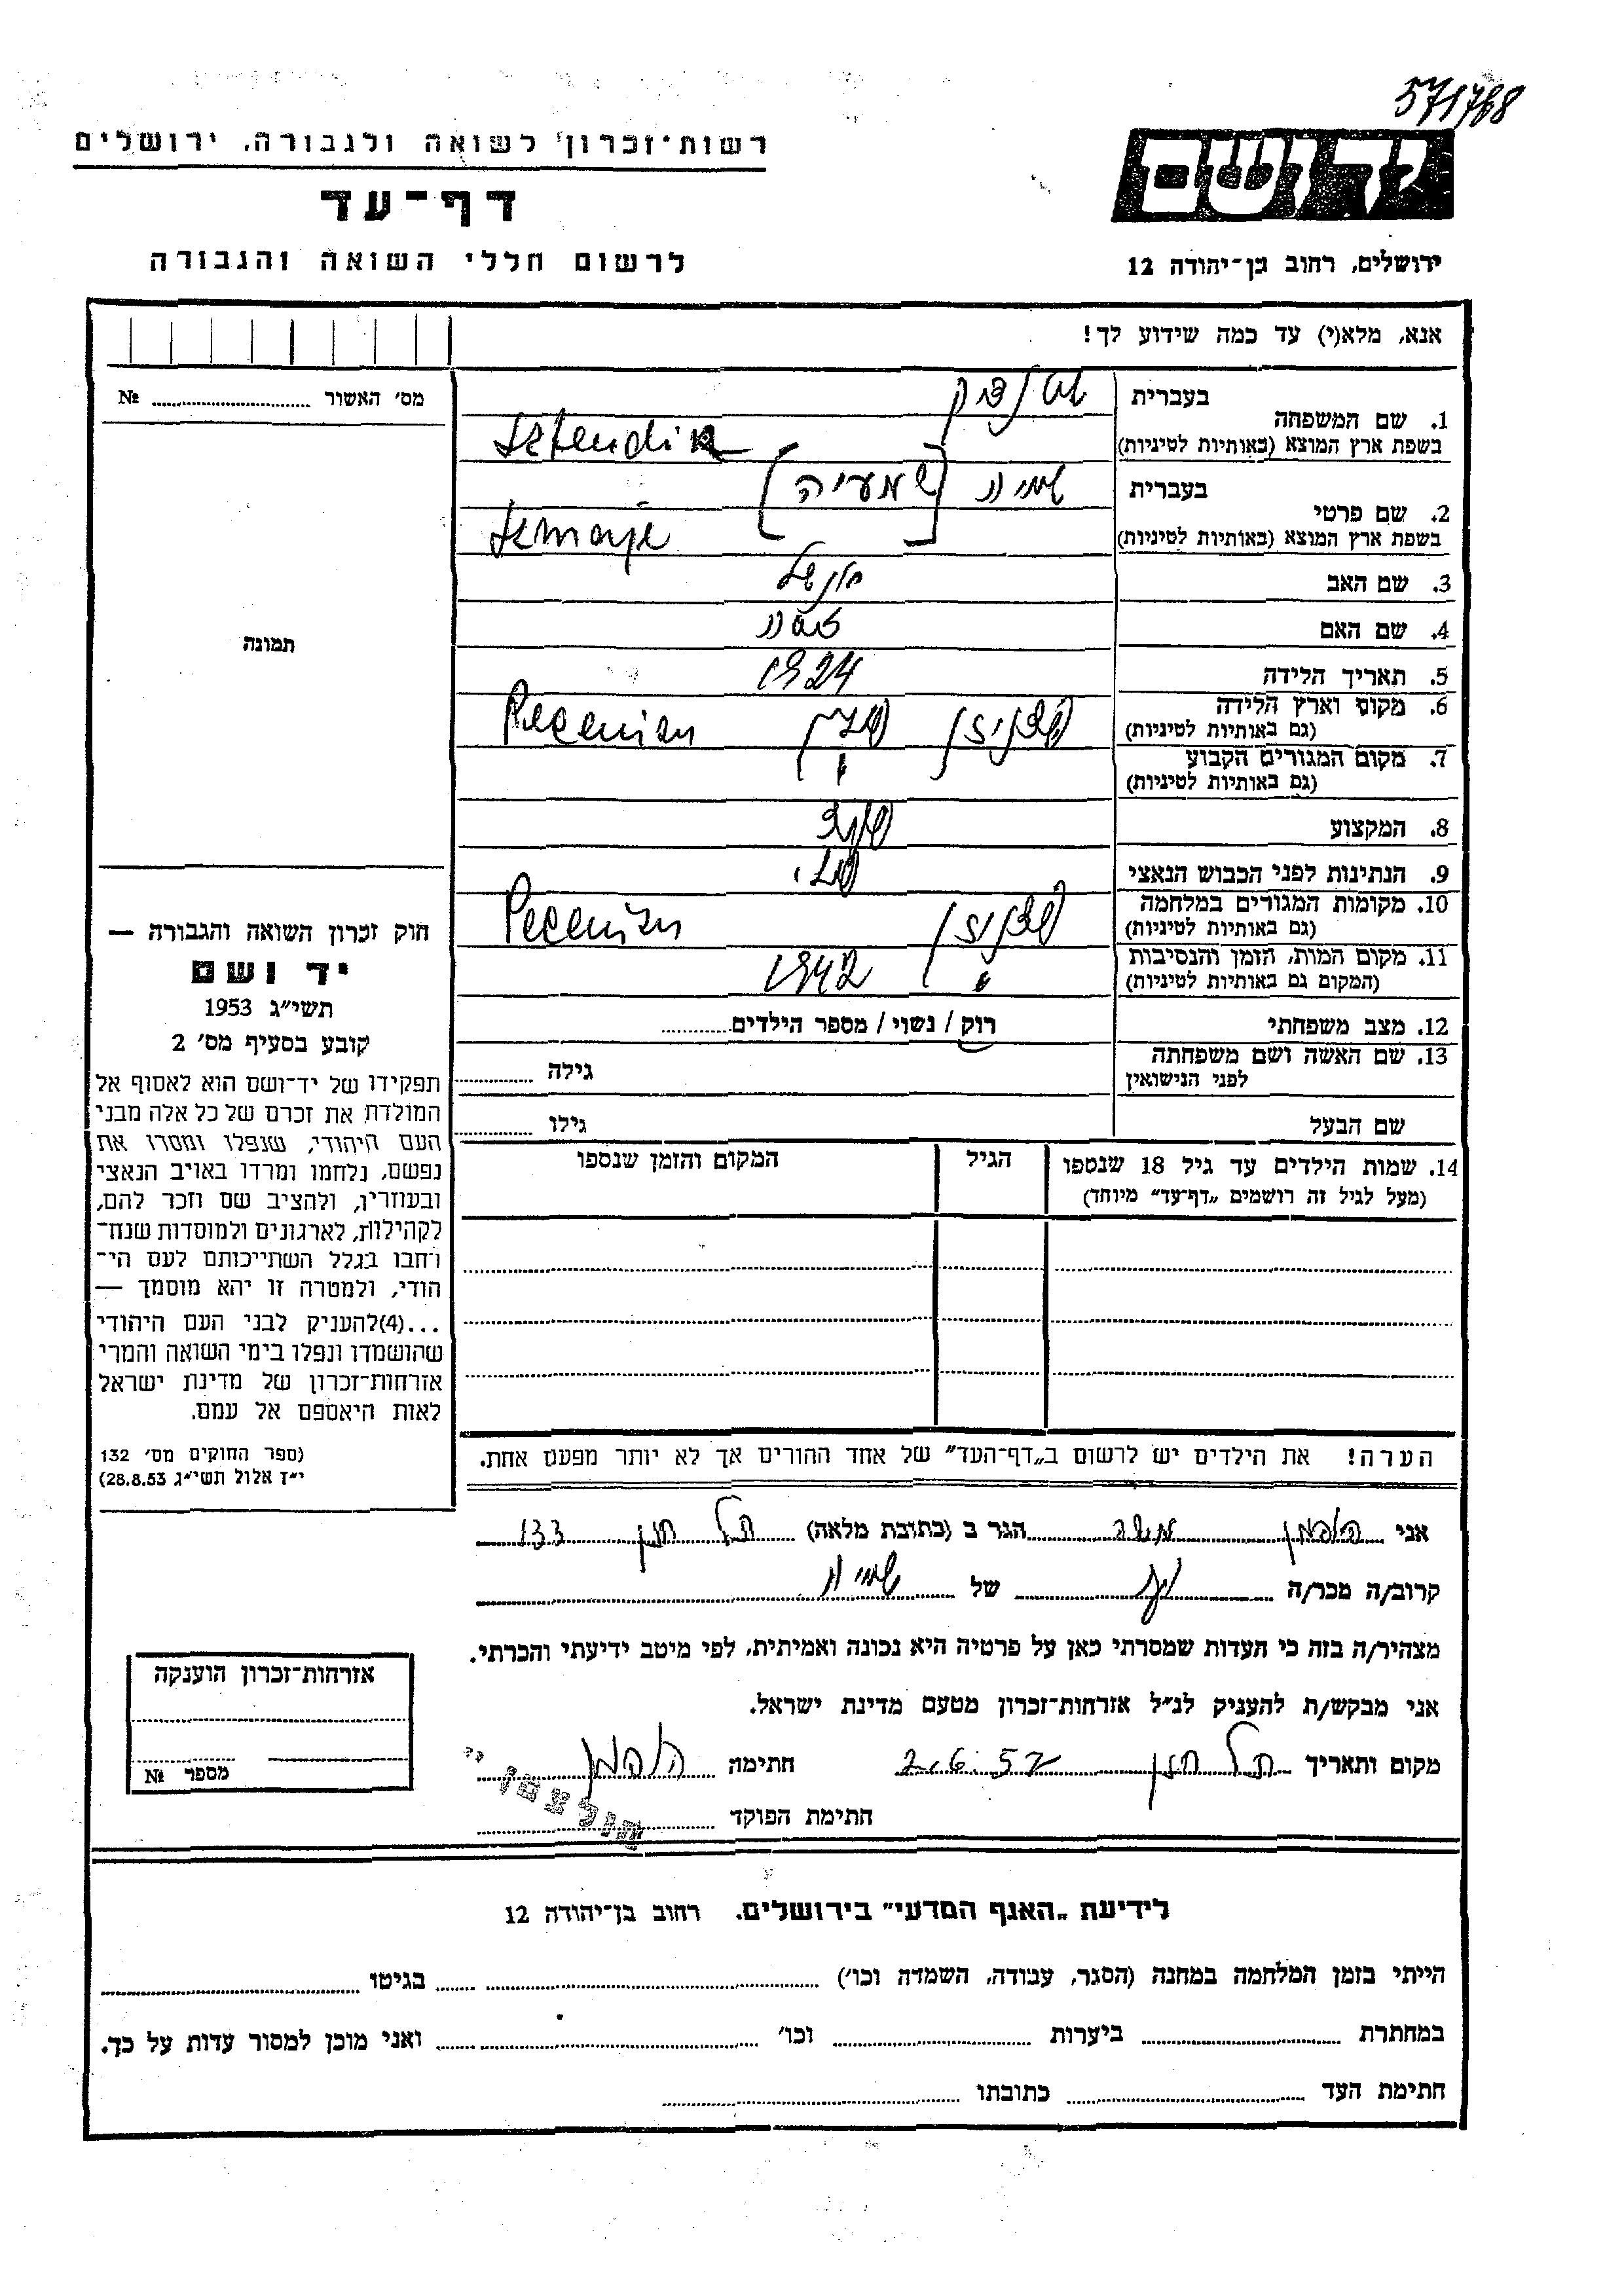 571768
רשות־זכרון לשואה ולגבורה, ירושלים
יד ושם
דף־עד
ירושלים, רחוב בן־יהודה 12
לרשום חללי השואה והגבורה
אנא, מלא(י) עד כמה שידוע לך!
מס׳ האשור № ...
בעברית
1. שם המשפחה
בשפת ארץ המוצא (באותיות לטיניות)
בעברית שמיה [שמעיה]
2. שם פרטי
בשפת ארץ המוצא (באותיות לטיניות) Szmaje
3. שם האב
4. שם האם
תמונה
5. תאריך הלידה 1924
6. מקום וארץ הלידה
(גם באותיות לטיניות)
7. מקום המגורים הקבוע
(גם באותיות לטיניות)
8. המקצוע
9. הנתינות לפני הכבוש הנאצי
10. מקומות המגורים במלחמה
(גם באותיות לטיניות)
11. מקום המות, הזמן והנסיבות 1942
(המקום גם באותיות לטיניות)
12. מצב משפחתי רוק / נשוי / מספר הילדים
13. שם האשה ושם משפחתה גילה
לפני הנישואין
שם הבעל גילו
14. שמות הילדים עד גיל 18 שנספו הגיל המקום והזמן שנספו
(מעל לגיל זה רושמים „דף־עד” מיוחד)
חוק זכרון השואה והגבורה —
יד ושם
תשי״ג 1953
קובע בסעיף מס׳ 2
תפקידו של יד־ושם הוא לאסוף אל
המולדת את זכרם של כל אלה מבני
העם היהודי, שנפלו ומסרו את
נפשם, נלחמו ומרדו באויב הנאצי
ובעוזריו, ולהציב שם וזכר להם,
לקהילות, לארגונים ולמוסדות שנח־
רחבו בגלל השתייכותם לעם הי־
הודי, ולמטרה זו יהא מוסמך —
...(4)להעניק לבני העם היהודי
שהושמדו ונפלו בימי השואה והמרי
אזרחות־זכרון של מדינת ישראל
לאות היאספם אל עמם.
(ספר החוקים מס׳ 132
י״ז אלול תשי״ג 28.8.53)
הערה! את הילדים יש לרשום ב„דף־העד” של אחד ההורים אך לא יותר מפעם אחת.
אני הלפמן משה הגר ב (כתובת מלאה) תל חנן 133
קרוב/ה מכר/ה של שמיה
מצהיר/ה בזה כי העדות שמסרתי כאן על פרטיה היא נכונה ואמיתית, לפי מיטב ידיעתי והכרתי.
אני מבקש/ת להעניק לנ״ל אזרחות־זכרון מטעם מדינת ישראל.
מקום ותאריך תל חנן 2.6.57 חתימה הלפמן
חתימת הפוקד
אזרחות־זכרון הוענקה
מספר №
לידיעת „האגף המדעי” בירושלים. רחוב בן־יהודה 12
הייתי בזמן המלחמה במחנה (הסגר, עבודה, השמדה וכו׳) בגיטו
במחתרת ביערות וכו׳ ואני מוכן למסור עדות על כך.
חתימת העד כתובתו